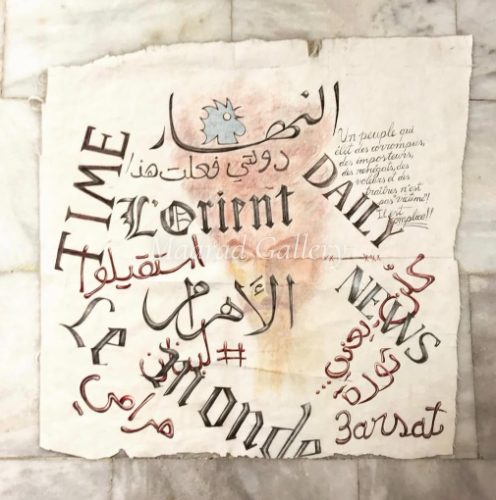 النهار
دولتي فعلت هذا
TIME
L'Orient
DAILY
NEWS
Un peuple qui
élit des corrompus,
des imposteurs,
des renégats, des
voleurs et des
traîtres n'est
pas victime!
Il est
complice!!
Maarad Gallery
استقيلوا
الأهرام
كلن يعني
ثورة
#لبنان
Le Monde
3arsat